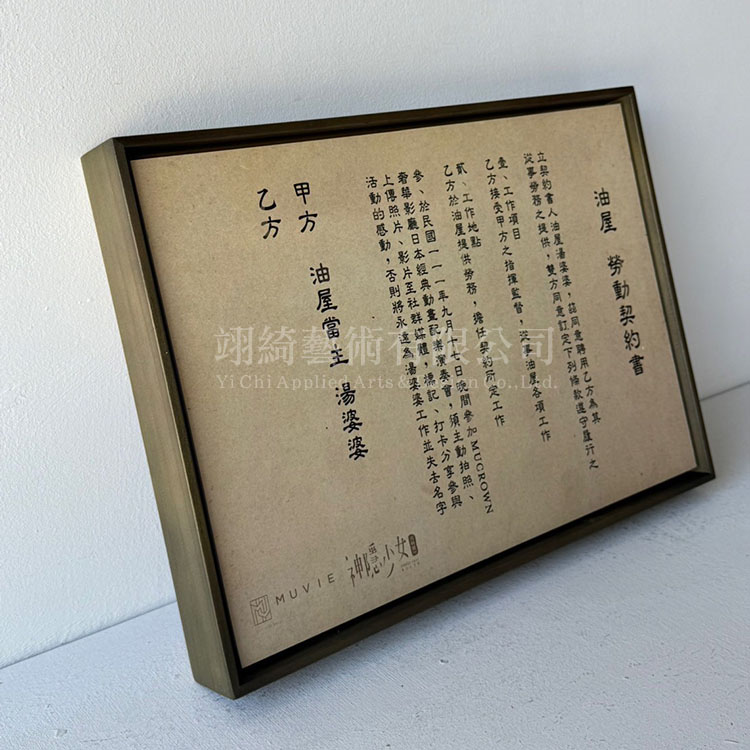 油屋 勞動契約書
立契約書人油屋湯婆婆，茲同意聘用乙方為其
從事勞務之提供，雙方同意訂定下列條款遵守履行之
壹、工作項目
乙方接受甲方之指揮監督，從事油屋各項工作
貳、工作地點
乙方於油屋提供勞務，擔任契約所定工作
參、於民國一一一年九月七日晚間參加MUCROWN
奢華影廳日本經典動畫配樂演奏會，須主動拍照、
上傳照片、影片至社群媒體，標記、打卡分享參與
活動的感動，否則將永遠為湯婆婆工作並失去名字
甲方 油屋當主 湯婆婆
乙方
MUVIE 神隱少女
翊綺藝術有限公司
Yi Chi Applied Arts & Design Co., Ltd.